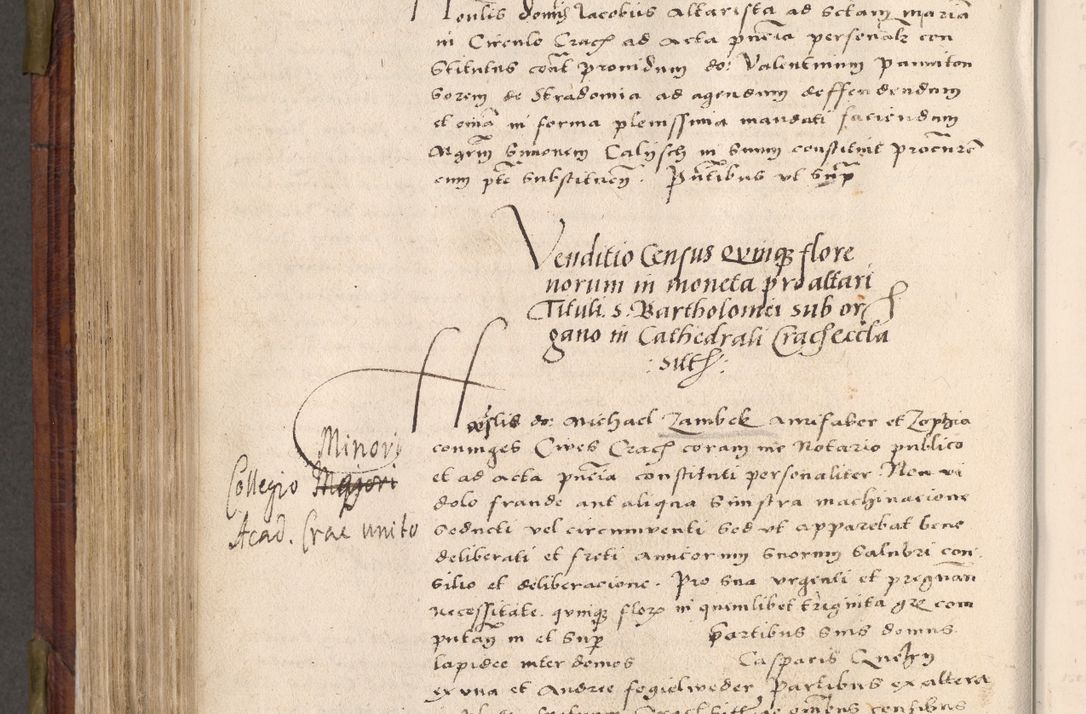 domis Jacobus Altarista ad Sctam Mariā
in Circulo Crac̄ ad Acta pn̄cia personalr con
stitutus cont̄ prouidum do: Valentinum panniton
sorem de Stradomia ad agendum deffendendum
et om̄ia in forma plenissima mandati faciendum
Mgrm Simonem Calysch in Suum constituit procurē
cum pt̄e substituen̄. Pn̄tibus vt Sup̄
Venditio Census quinq̃ flore
norum in moneta pro altari
Tituli S: Bartholomei sub or
gano in Cathedrali Crac̄ eccl̄a
sit̄:
do: Michael Zambek Aurifaber et Zophia
coniuges Ciues Crac̄ coram me Notario publico
et ad acta pn̄cia constituti personaliter Non vi
dolo fraude aut aliqua Sinistra machinacione
Seducti vel circumuenti Sed vt apparebat bene
deliberati et freti amicorum Suorum Salubri con
silio et deliberacione. Pro sua vrgenti et pregnan
necessitate. quinq̃ flor̄ in quemlibet triginta gr̄ com
putan̄ in et Sup̄ partibus suis domus
lapidee inter domos Casparis Quehn
ex vna et Andree fogielweder Partibus ex altera
Minori
Collegio Majori
Acad. Crac unito